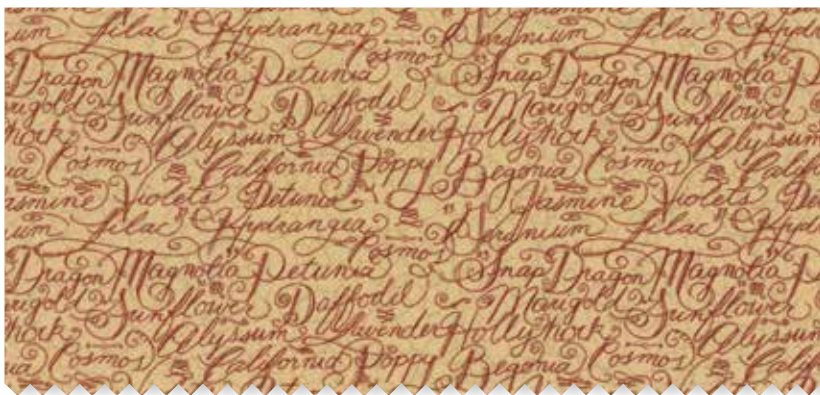 ium Lilac Hydrangea Geranium Lilac Hydr
Cosmos
Dragon Magnolia Petunia Snap Dragon Magnolia Pe
Marigold Sunflower Daffodil Marigold Sunflower
Hock Alyssum Lavender Hollyhock Alyssum
Cosmos California Poppy Begonia Cosmos Calif
asmine Violets Petunia Jasmine Violets Pe
ium Lilac Hydrangea Geranium Lilac Hydr
Cosmos
Dragon Magnolia Petunia Snap Dragon Magnolia Pe
arigold Sunflower Daffodil Marigold Sunflower
Hock Alyssum Lavender Hollyhock Alyssum
Cosmos California Poppy Begonia Cosmos Calif